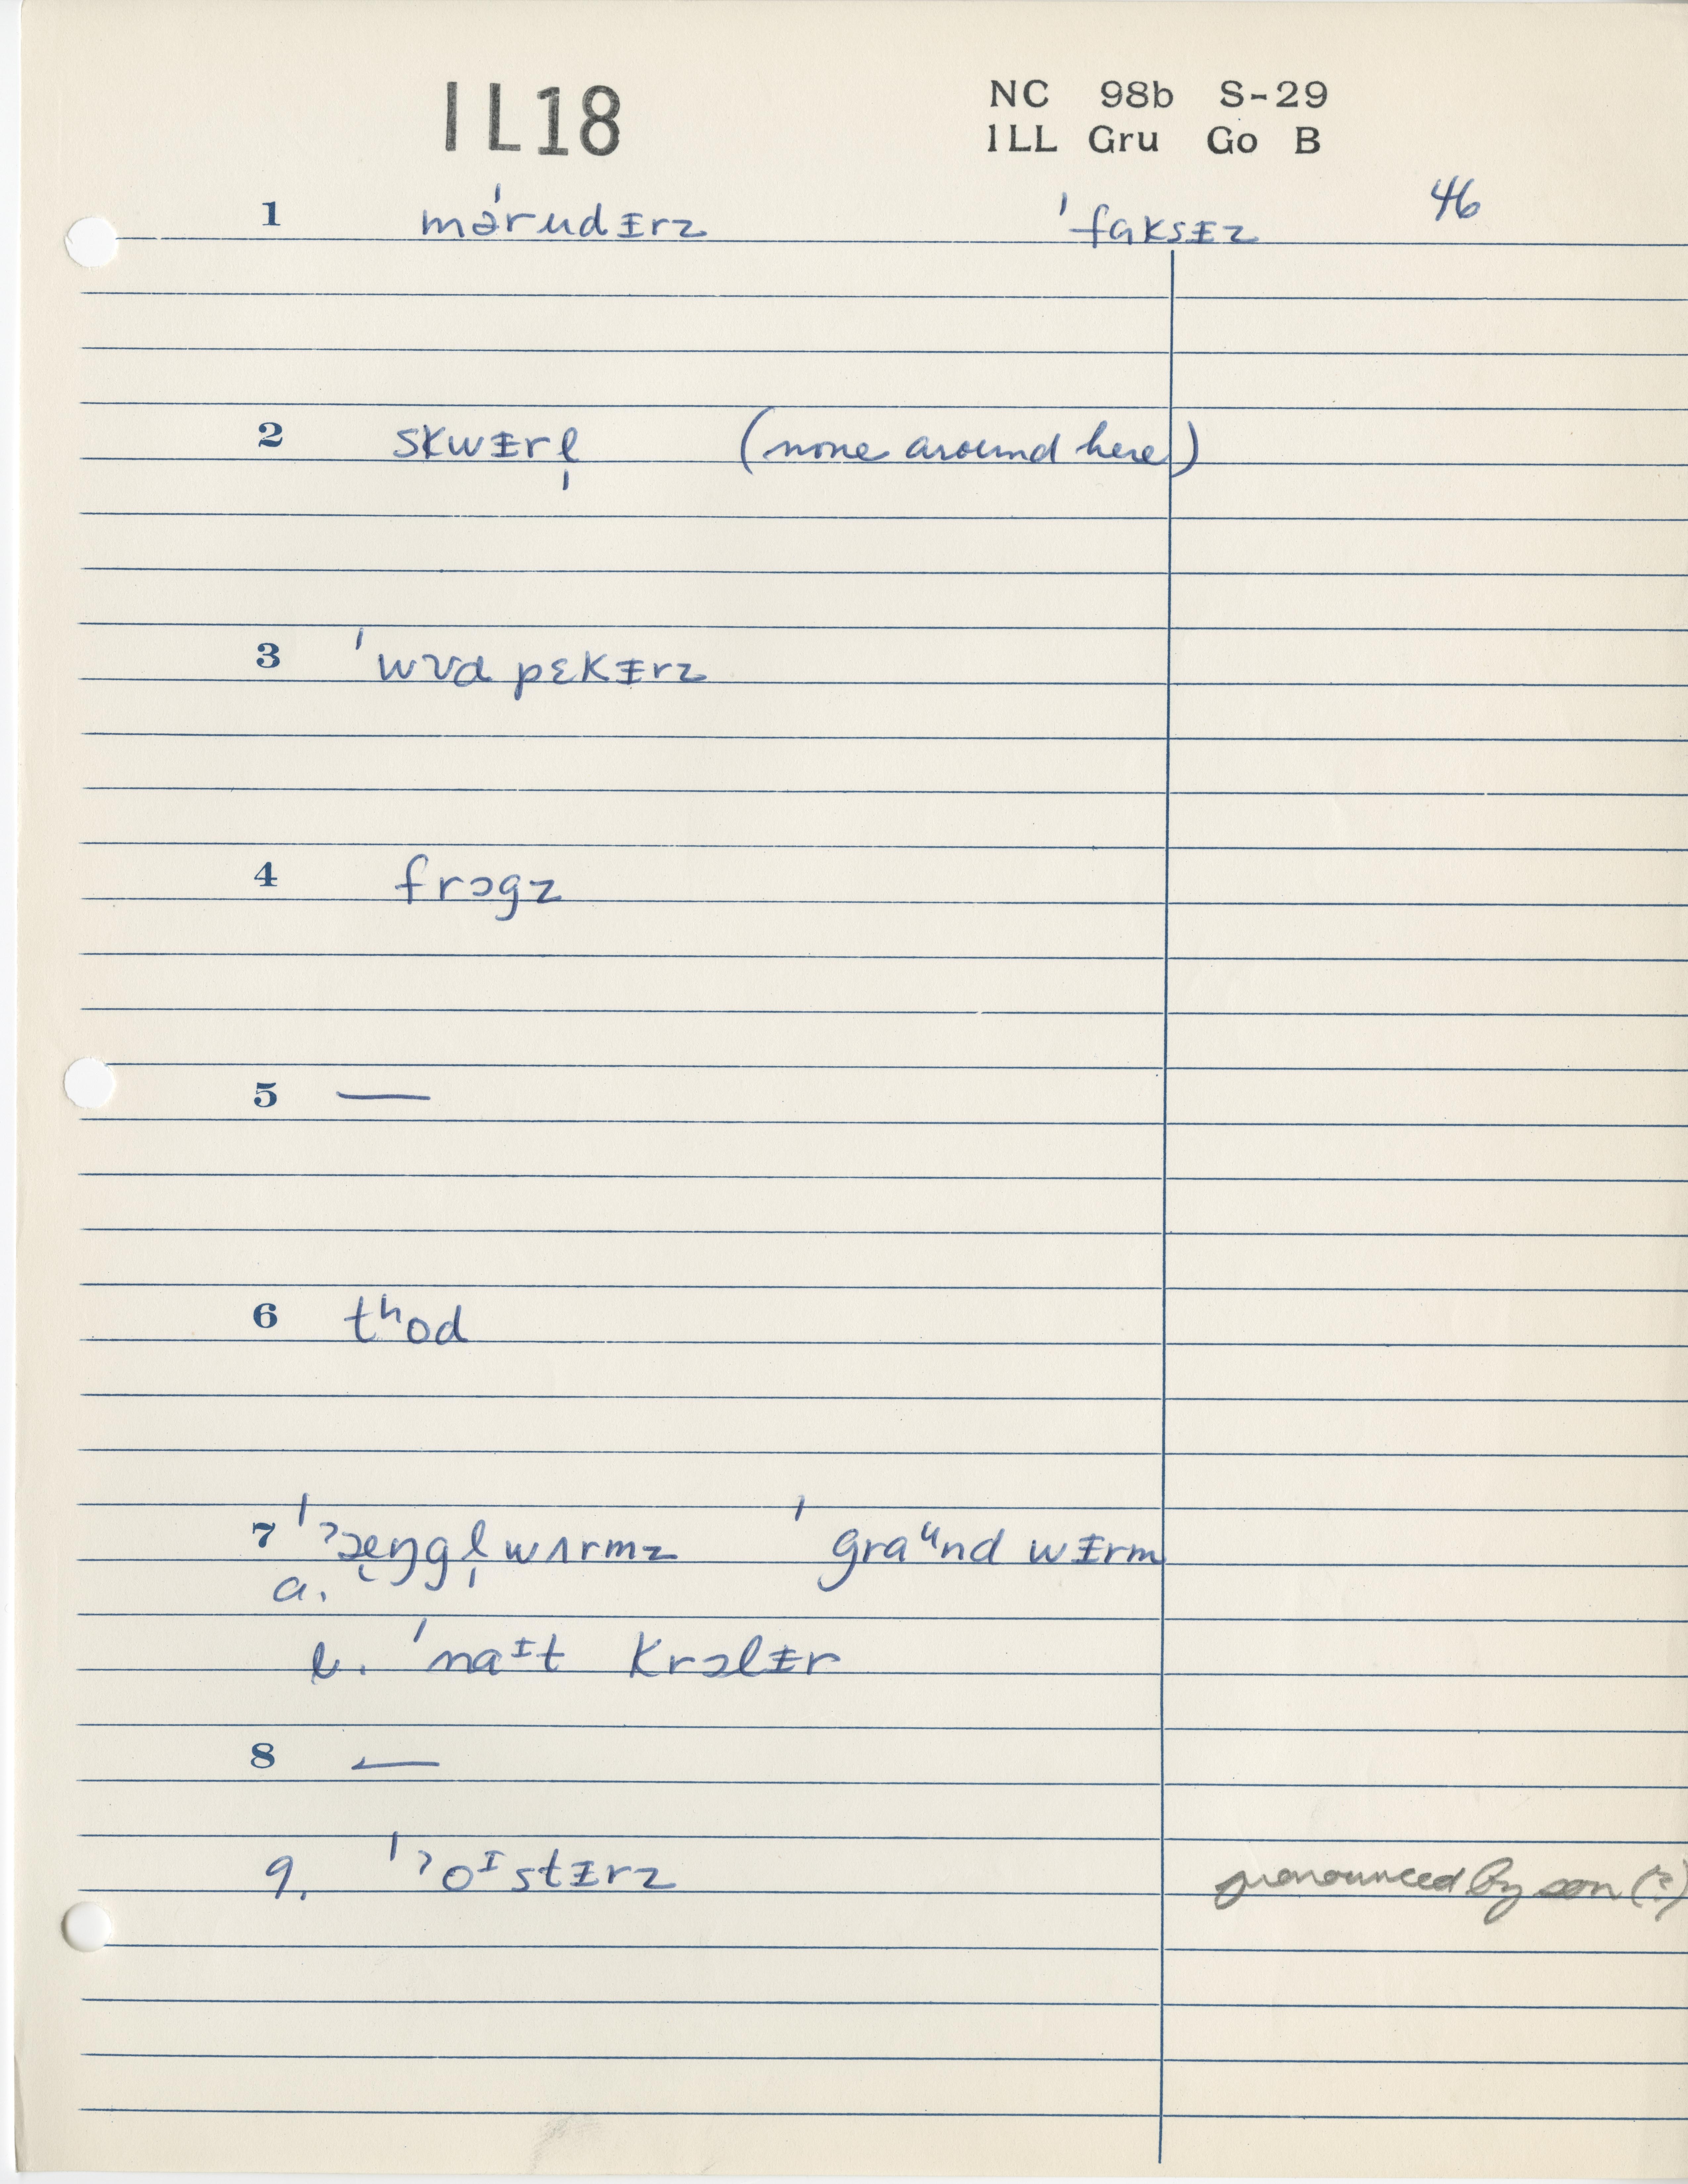 IL18
NC 98b S-29
ILL Gru Go B
46
1 məˈrudɨrz ˈfaksɨz
2 skwɨrl̩ (none around here)
3 ˈwʊd pɛkɨrz
4 frɔgz
5 —
6 tʰod
7 ˈʔæŋgl̩wʌrmz ˈgraᵘnd wɨrm
a.
b. ˈnaᶦt krɔlɨr
8 —
9. ˈʔoᶦstɨrz pronounced by son (?)